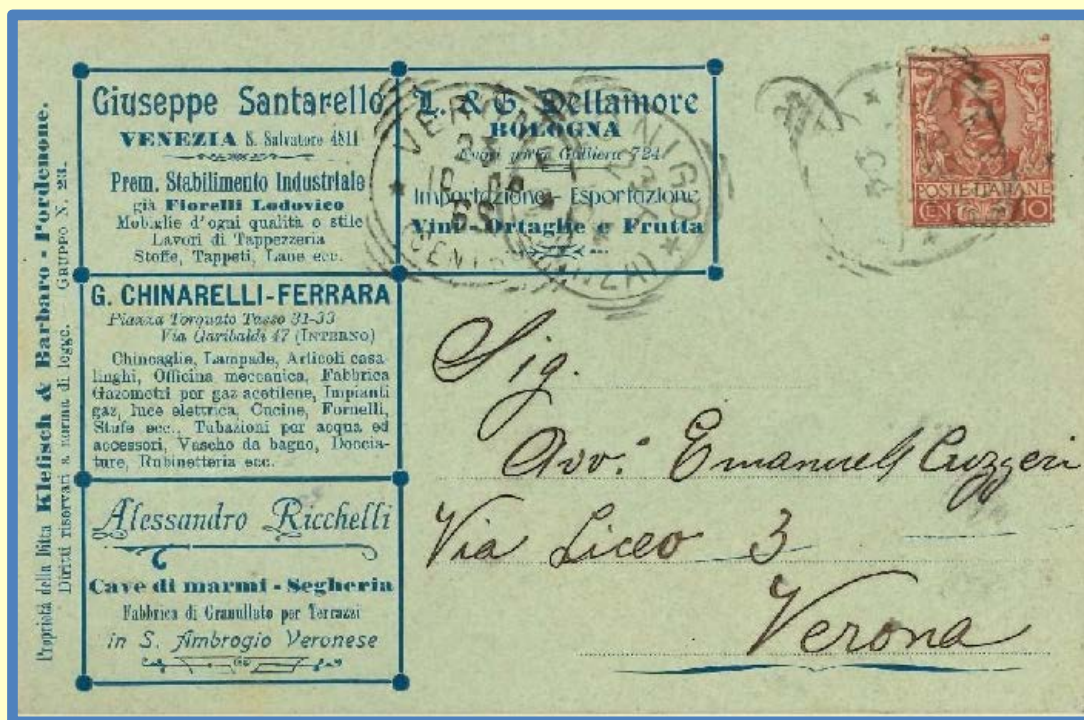 Proprietà della Ditta Klefisch & Barbaro - Pordenone.
Diritti riservati a norma di legge. — GRUPPO N. 23.
Giuseppe Santarello
VENEZIA S. Salvatore 4811
Prem. Stabilimento Industriale
già Fiorelli Lodovico
Mobiglie d'ogni qualità o stile
Lavori di Tappezzeria
Stoffe, Tappeti, Lane ecc.
L. & G. Dellamore
BOLOGNA
Fuori porta Galliera 724
Importazione - Esportazione
Vini - Ortaglie e Frutta
G. CHINARELLI-FERRARA
Piazza Torquato Tasso 31-33
Via Garibaldi 47 (INTERNO)
Chincaglie, Lampade, Articoli casa-
linghi, Officina meccanica, Fabbrica
Gazometri per gaz acetilene, Impianti
gaz, luce elettrica, Cucine, Fornelli,
Stufe ecc., Tubazioni per acqua ed
accessori, Vasche da bagno, Doccia-
ture, Rubinetteria ecc.
Alessandro Ricchelli
Cave di marmi - Segheria
Fabbrica di Granullato per Terrazzi
in S. Ambrogio Veronese
POSTE ITALIANE
CENT. 10
Sig.
Avv. Emanuele Cuzzeri
Via Liceo 3
Verona